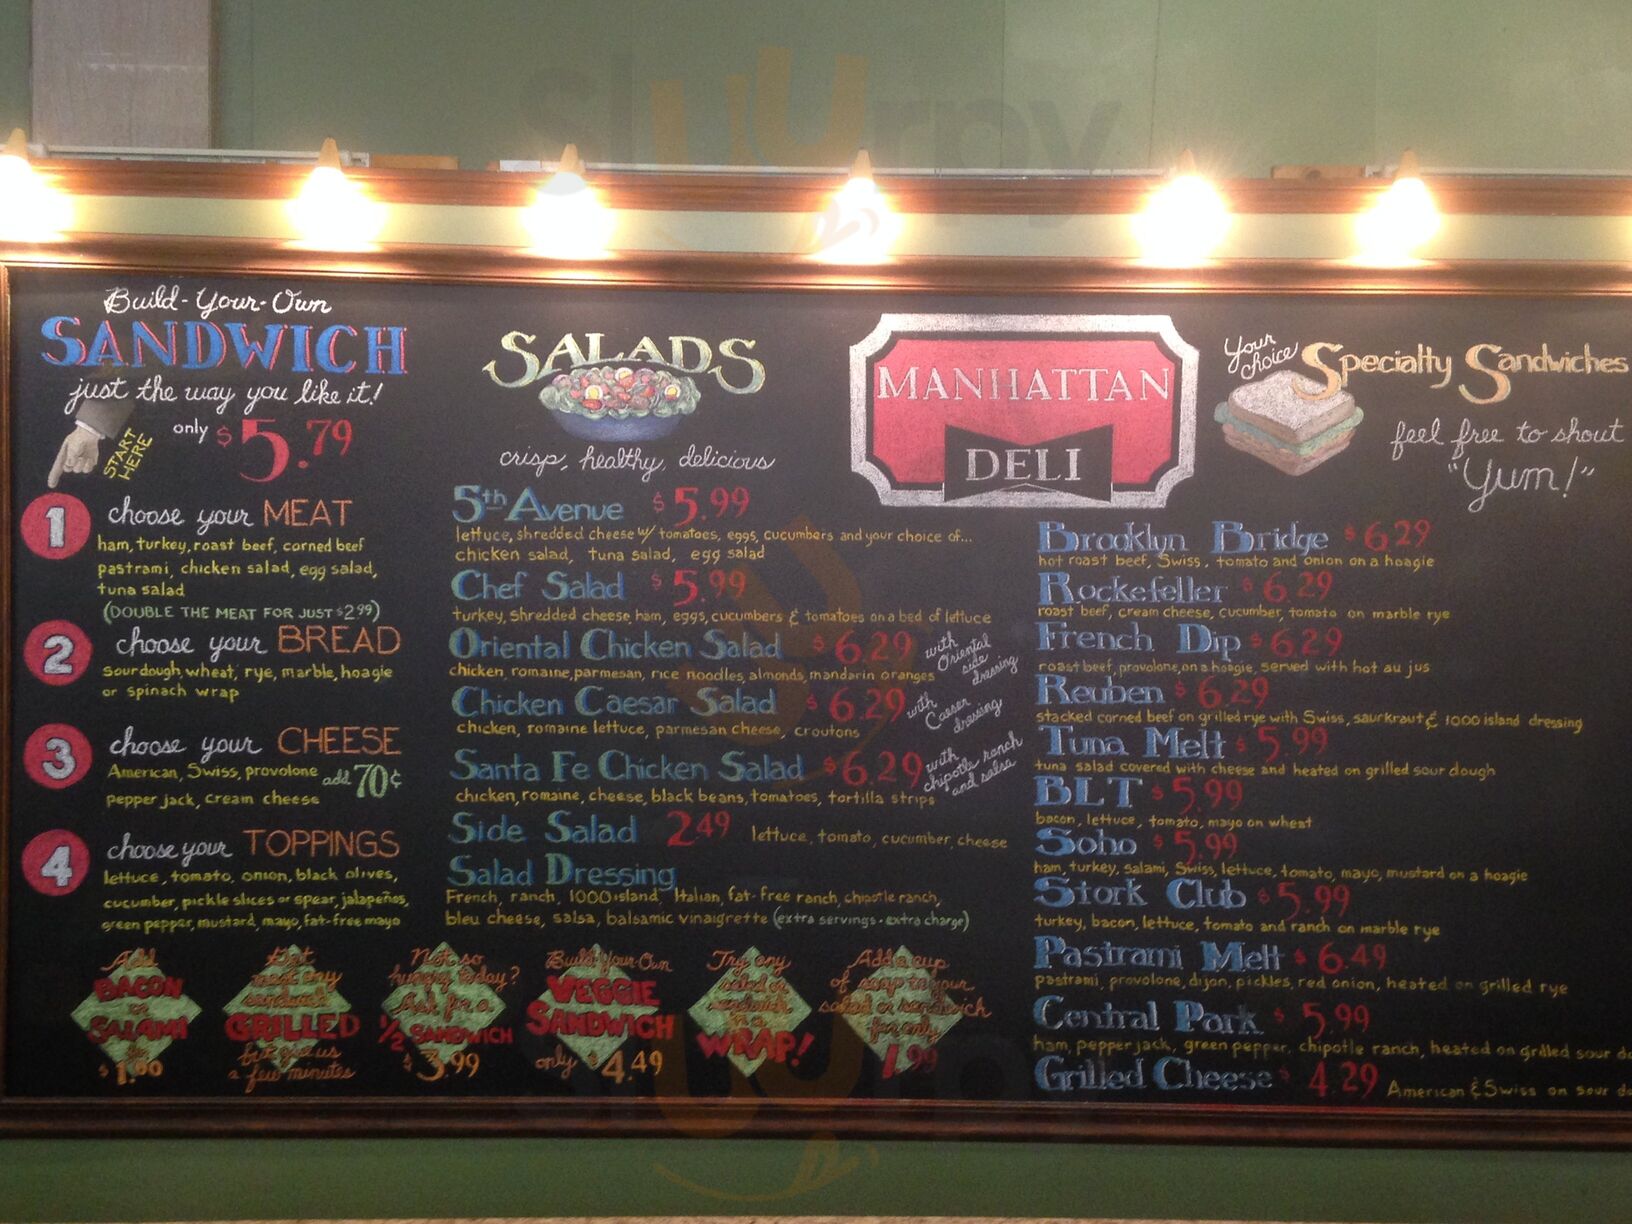 Build-Your-Own
SANDWICH
just the way you like it!
START HERE
only $5.79
1 choose your MEAT
ham, turkey, roast beef, corned beef
pastrami, chicken salad, egg salad,
tuna salad
(DOUBLE THE MEAT FOR JUST $2.99)
2 choose your BREAD
sourdough, wheat, rye, marble, hoagie
or spinach wrap
3 choose your CHEESE
American, Swiss, provolone add 70¢
pepper jack, cream cheese
4 choose your TOPPINGS
lettuce, tomato, onion, black olives,
cucumber, pickle slices or spear, jalapeños,
green pepper, mustard, mayo, fat-free mayo
SALADS
crisp, healthy, delicious
5th Avenue $5.99
lettuce, shredded cheese w/ tomatoes, eggs, cucumbers and your choice of...
chicken salad, tuna salad, egg salad
Chef Salad $5.99
turkey, shredded cheese, ham, eggs, cucumbers & tomatoes on a bed of lettuce
Oriental Chicken Salad $6.29 with Oriental side dressing
chicken, romaine, parmesan, rice noodles, almonds, mandarin oranges
Chicken Caesar Salad $6.29 with Caesar dressing
chicken, romaine lettuce, parmesan cheese, croutons
Santa Fe Chicken Salad $6.29 with chipotle ranch and salsa
chicken, romaine, cheese, black beans, tomatoes, tortilla strips
Side Salad 2.49 lettuce, tomato, cucumber, cheese
Salad Dressing
French, ranch, 1000 island, Italian, fat-free ranch, chipotle ranch,
bleu cheese, salsa, balsamic vinaigrette (extra servings - extra charge)
MANHATTAN
DELI
Your choice Specialty Sandwiches
feel free to shout
"Yum!"
Brooklyn Bridge $6.29
hot roast beef, Swiss, tomato and onion on a hoagie
Rockefeller $6.29
roast beef, cream cheese, cucumber, tomato on marble rye
French Dip $6.29
roast beef, provolone, on a hoagie, served with hot au jus
Reuben $6.29
stacked corned beef on grilled rye with Swiss, saurkraut & 1000 island dressing
Tuna Melt $5.99
tuna salad covered with cheese and heated on grilled sour dough
BLT $5.99
bacon, lettuce, tomato, mayo on wheat
Soho $5.99
ham, turkey, salami, Swiss, lettuce, tomato, mayo, mustard on a hoagie
Stork Club $5.99
turkey, bacon, lettuce, tomato and ranch on marble rye
Pastrami Melt $6.49
pastrami, provolone, dijon, pickles, red onion, heated on grilled rye
Central Park $5.99
ham, pepper jack, green pepper, chipotle ranch, heated on grilled sour do
Grilled Cheese $4.29 American & Swiss on sour do
Add
BACON
or
SALAMI
for
$1.00
Get
most any
sandwich
GRILLED
but give us
a few minutes
Not so
hungry today?
Ask for a
1/2 SANDWICH
$3.99
Build-Your-Own
VEGGIE
SANDWICH
only $4.49
Try any
salad or
sandwich
in a
WRAP!
Add a cup
of soup to your
salad or sandwich
for only
1.99
Sluurpy
Sluurpy